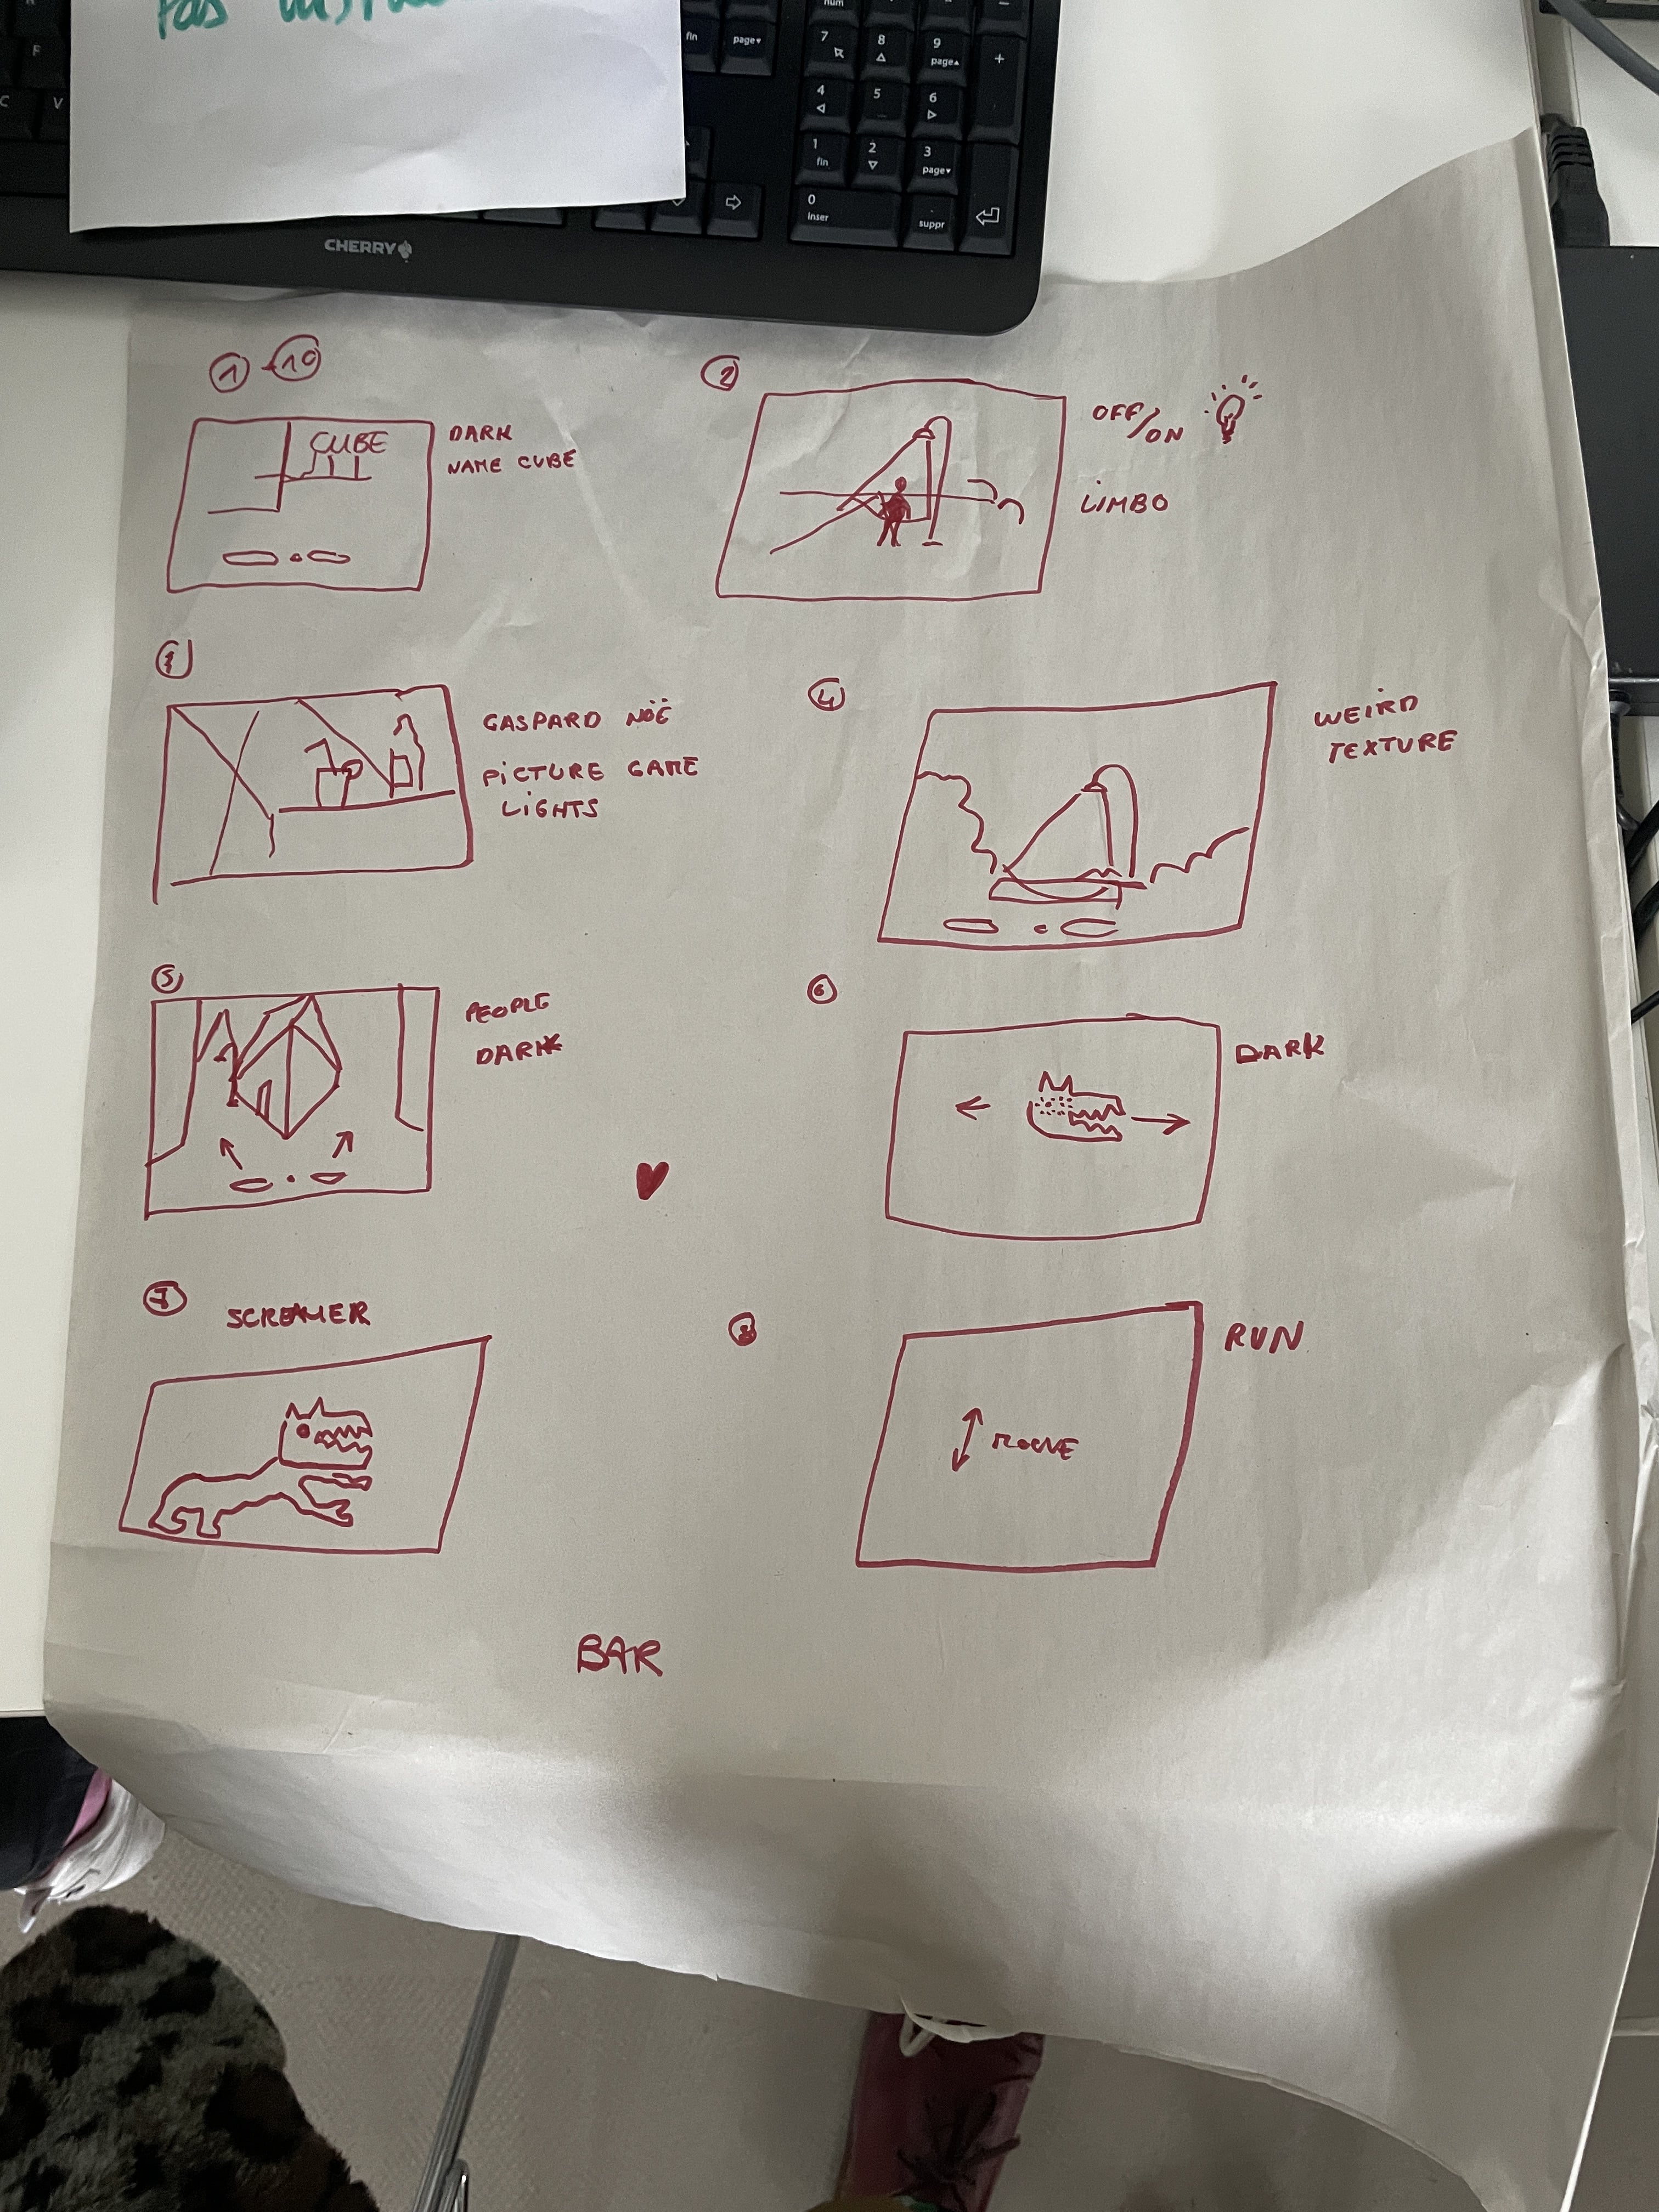 F
C
V
fin
page
num
7
8
9
page
+
4
5
6
1
fin
2
3
page
0
inser
.
suppr
CHERRY
1
10
CUBE
DARK
NAME CUBE
2
OFF/ON
LIMBO
GASPARD NOË
PICTURE GAME
LIGHTS
4
WEIRD
TEXTURE
5
PEOPLE
DARK
6
DARK
7
SCREAMER
8
RUN
MOOVE
BAR